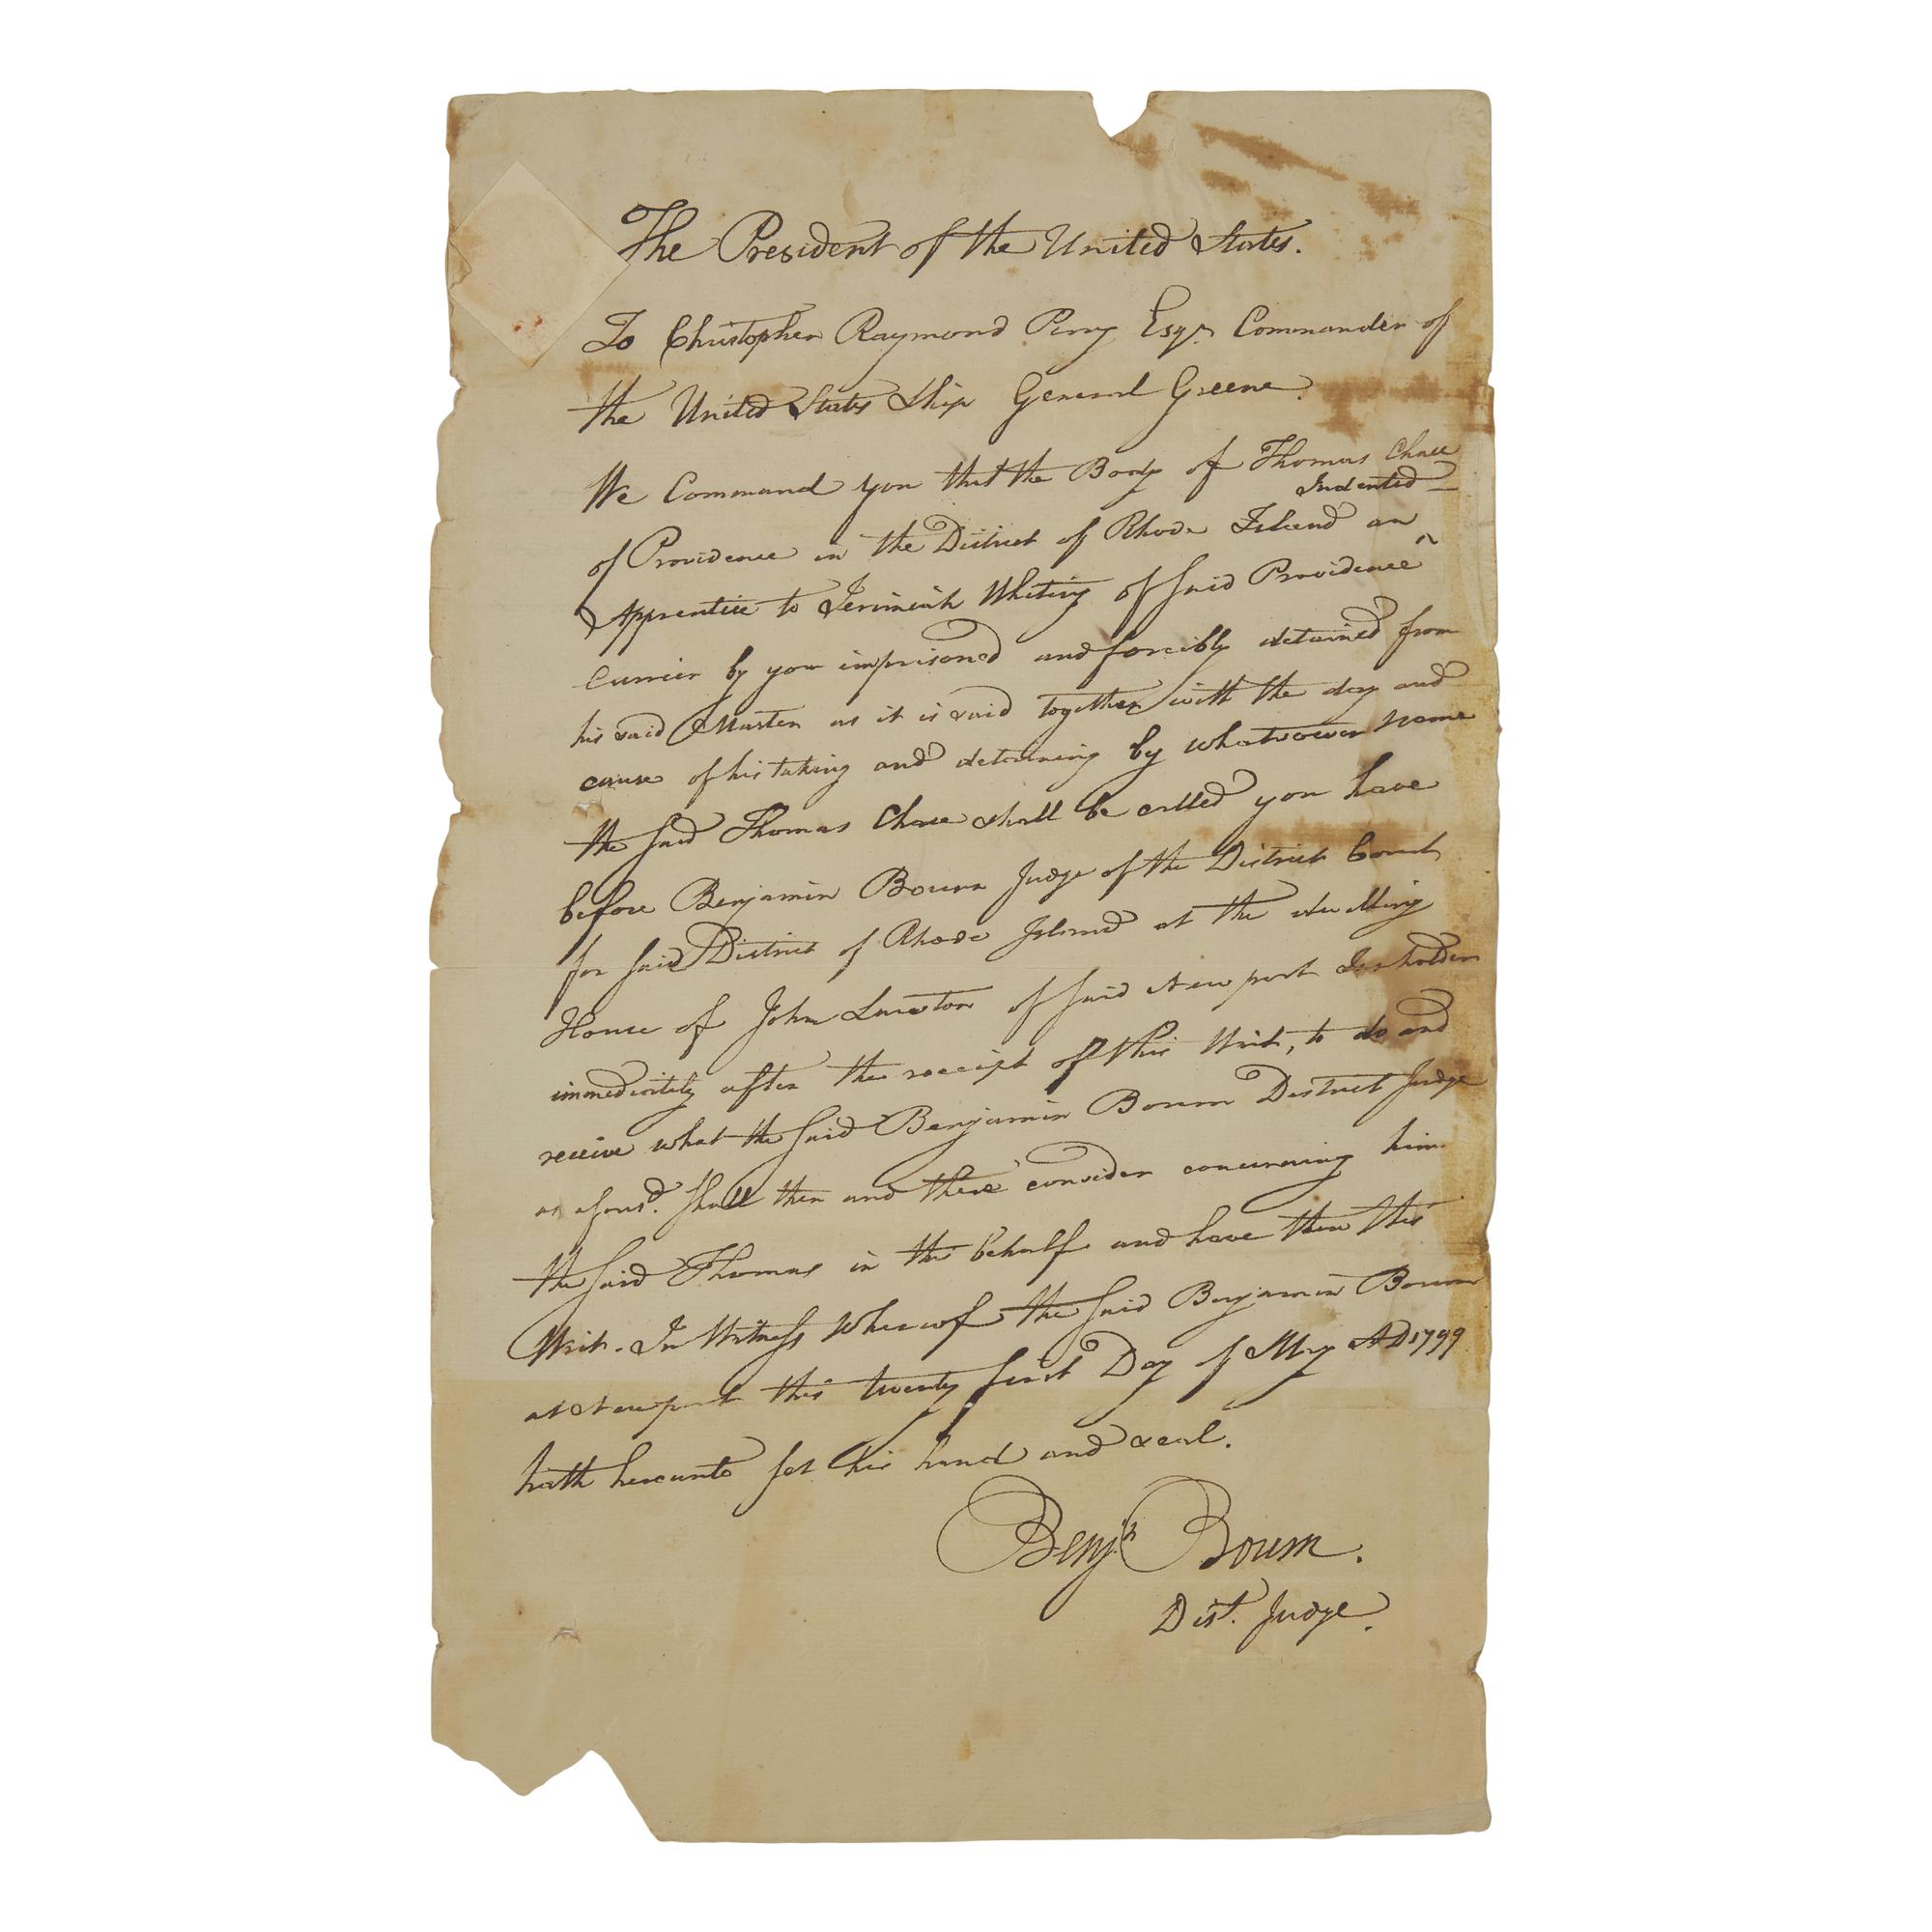 The President of the United States.
To Christopher Raymond Perry Esqr. Commander of
the United States Ship General Greene.
We Command you that the Body of Thomas Chace
Indented
of Providence in the District of Rhode Island an ^
Apprentice to Jerimiah Whiting of said Providence
Currier by you imprisoned and forcibly detained from
his said Master as it is said together with the day and
cause of his taking and detaining by whatsoever name
the said Thomas Chace shall be called you have
before Benjamin Bourn Judge of the District Court
for said District of Rhode Island at the dwelling
House of John Lawton of said Newport
immediately after the receipt of this Writ, to do and
receive what the said Benjamin Bourn District Judge
as aforesd. shall then and there consider concerning him
the said Thomas in this behalf and have then this
Writ. In Witness whereof the said Benjamin Bourn
at Newport this twenty first Day of May AD 1799
hath hereunto set his hand and seal.
Benjn Bourn.
Dist. Judge.